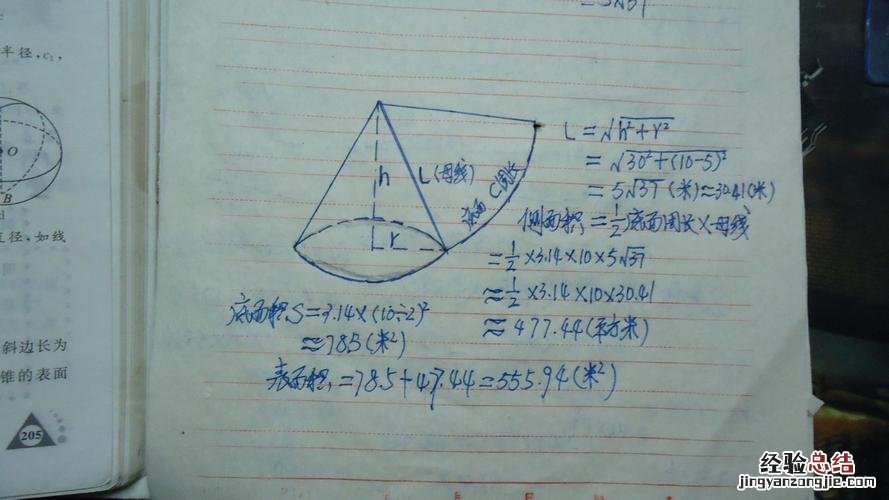 =5√37
半径,c₁,
O
B
直径、如线
斜边长为
锥的表面
205
h
L(母线)
r
底面 C周长
L=√h²+r²
=√30²+(10-5)²
=5√37(米)≈30.41(米)
侧面积=1/2底面周长×母线
=1/2×3.14×10×5√37
≈1/2×3.14×10×30.41
≈477.44(平方米)
底面积S=3.14×(10÷2)²
≈78.5(米²)
表面积=78.5+47.44=555.94(米²)
经验总结
jingyanzongjie.com